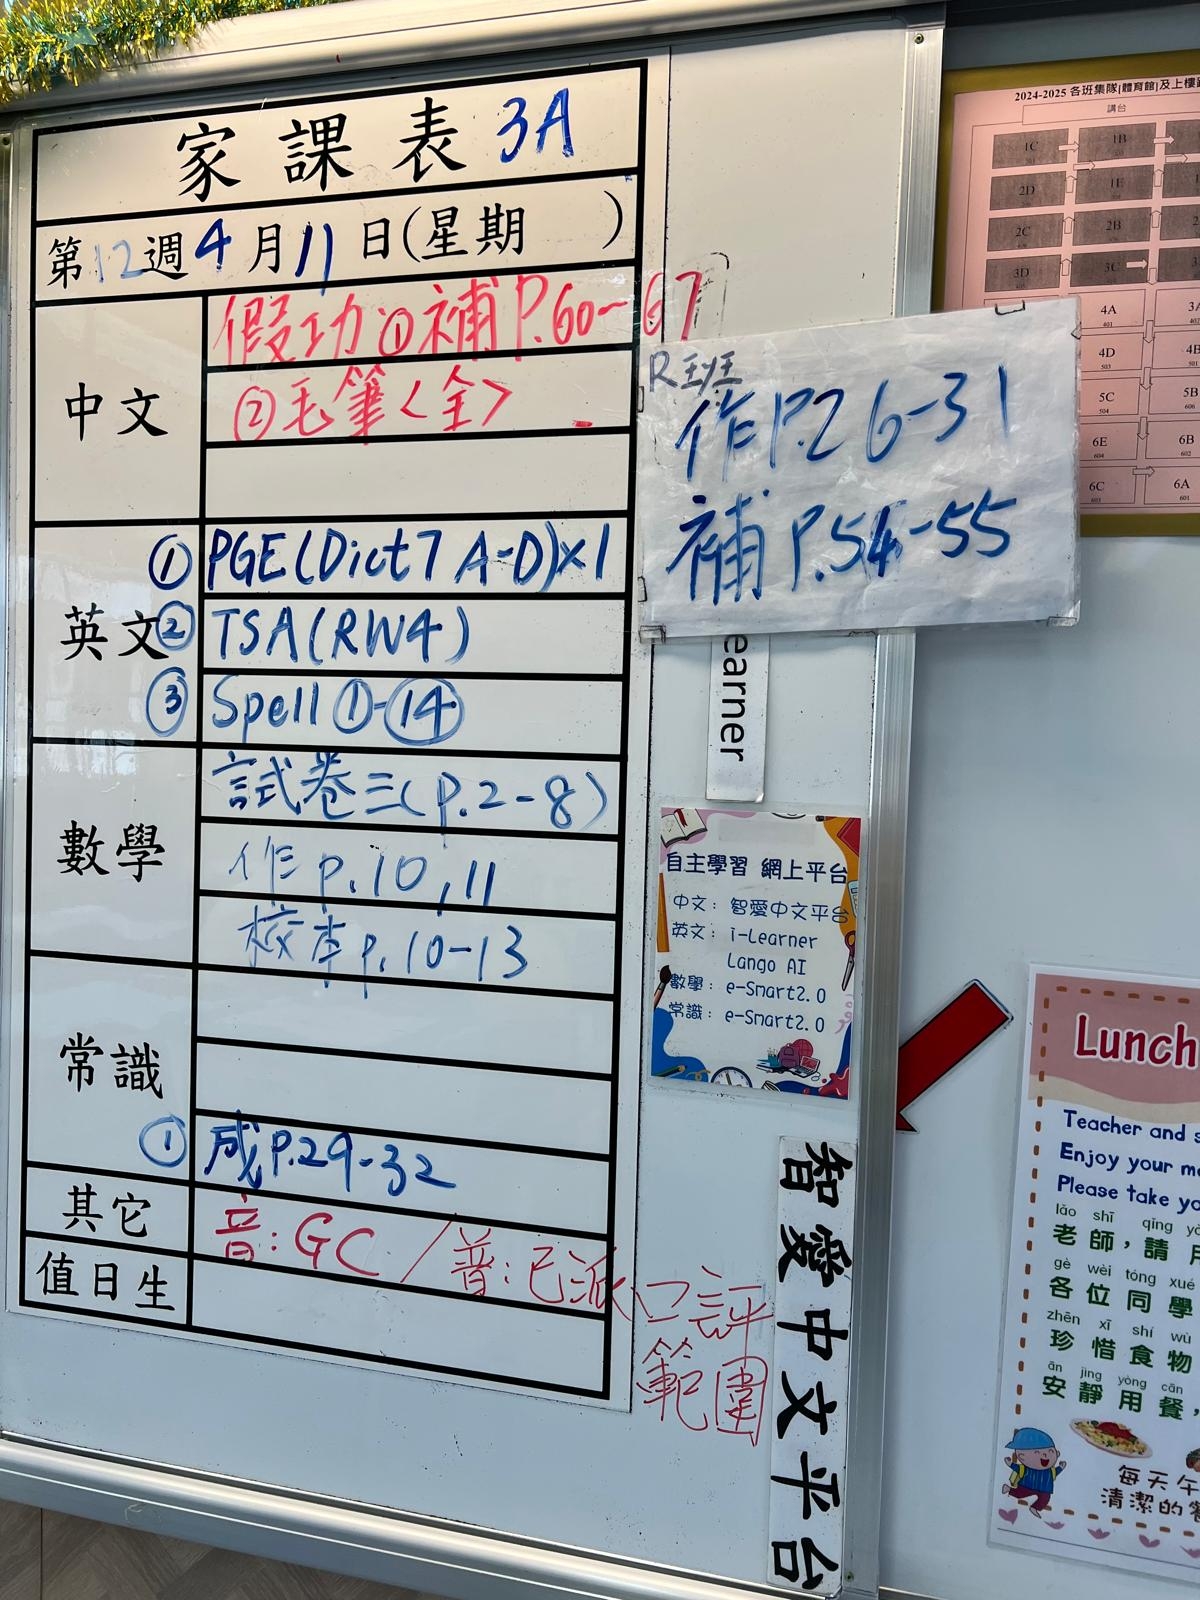 家課表 3A
第12週4月11日(星期 )
中文
假功①補P.60-67
②毛筆<全>
英文
①PGE(Dict7 A-D)×1
②TSA(RW4)
③Spell ①-⑭
數學
試卷三(p.2-8)
作 p.10,11
校本p.10-13
常識
①成P.29-32
其它
音:GC/普:已派口評
範圍
值日生
R班
作P.26-31
補P.54-55
earner
自主學習 網上平台
中文: 智愛中文平台
英文: i-Learner
Lango AI
數學: e-Smart2.0
常識: e-Smart2.0
智愛中文平台
2024-2025 各班集隊[體育館]及上樓
講台
1C
1B
2D
1E
2C
2B
3D
3C
4A
401
4D
503
5C
504
5B
606
6E
604
6B
602
6C
603
6A
601
Lunch
Teacher and s
Enjoy your me
Please take yo
lǎo shī qǐng
老師,請
gè wèi tóng xué
各位同學
zhēn xī shí wù
珍惜食物
ān jìng yòng cān
安靜用餐,
每天午
清潔的